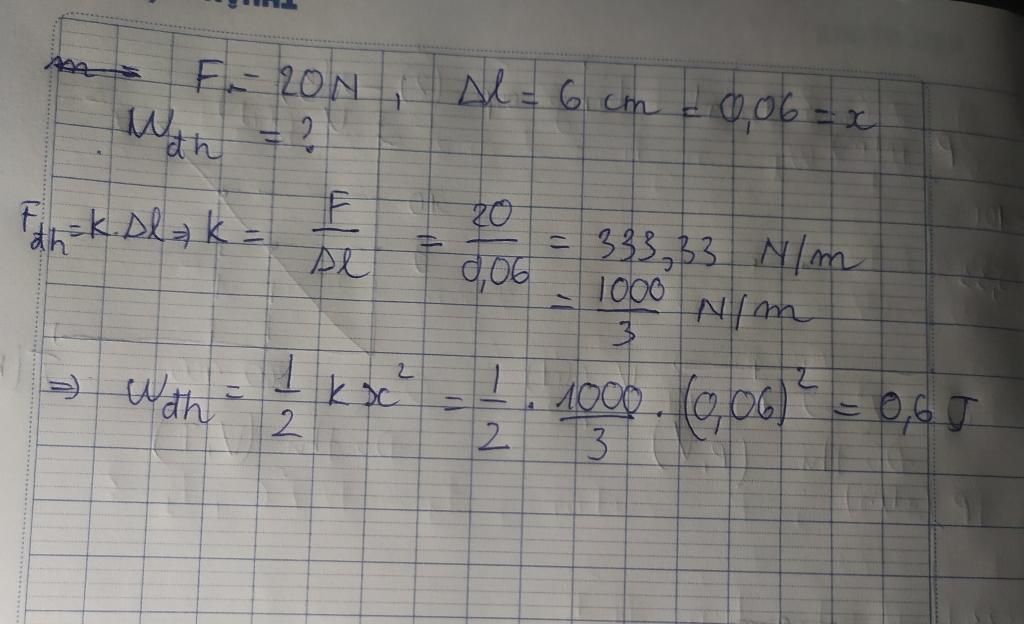 F = 20N, Δl = 6 cm = 0,06 = x
Wđh = ?
Fđh = k.Δl ⇒ k = F/Δl = 20/0,06 = 333,33 N/m
= 1000/3 N/m
⇒ Wđh = 1/2 kx² = 1/2 . 1000/3 . (0,06)² = 0,6 J